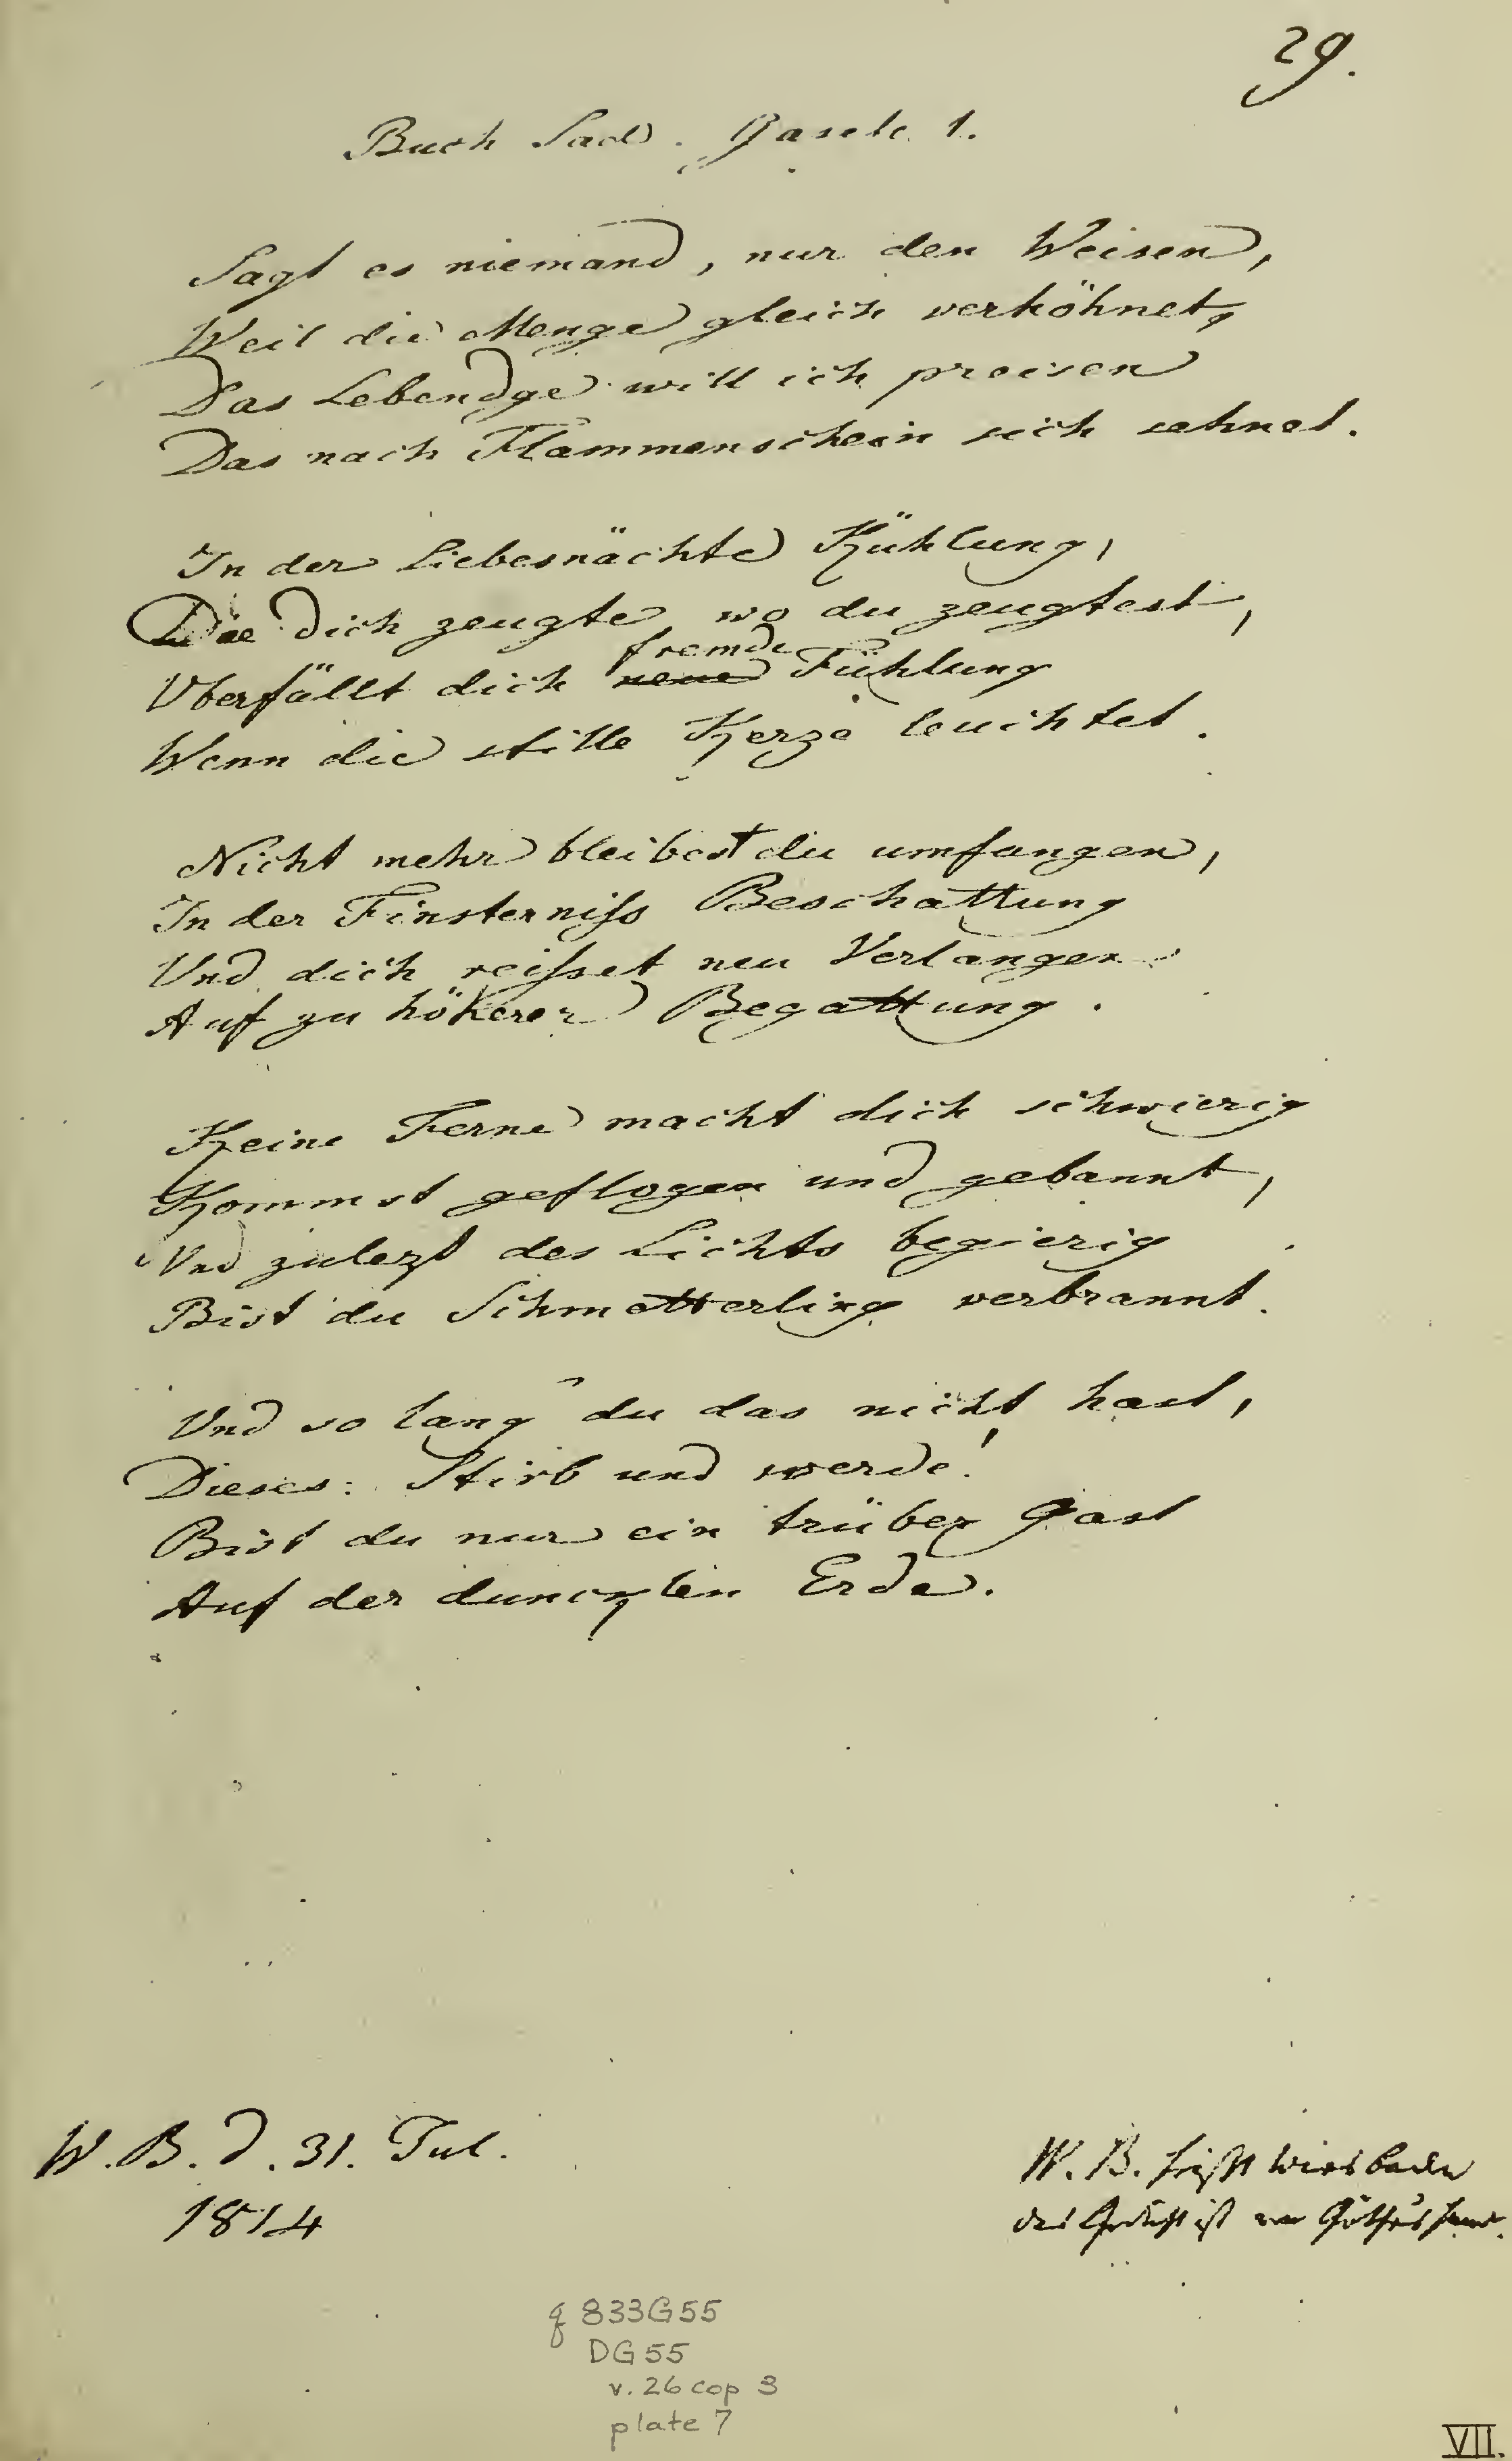 29.
Buch Sad. Gasele 1.
Sagt es niemand, nur den Weisen,
Weil die Menge gleich verhöhnet,
Das Lebendge will ich preisen
Das nach Flammenschein sich sehnet.
In der Liebesnächte Kühlung,
Die dich zeugte, wo du zeugtest,
fremde
Überfällt dich neue Fühlung
Wenn die stille Kerze leuchtet.
Nicht mehr bleibest du umfangen,
In der Finsterniss Beschattung
Und dich reisset neu Verlangen
Auf zu höherer Begattung.
Keine Ferne macht dich schwierig
Kommst geflogen und gebannt,
Und zulezt des Lichts begierig
Bist du Schmetterling verbrannt.
Und so lang du das nicht hast,
Dieses: Stirb und werde!
Bist du nur ein trüber Gast
Auf der duncklen Erde.
W. B. d. 31. Jul.
1814
W. B. heißt Wiesbaden
das Gedicht ist von Göthe's Hand.
q 833G55
DG55
v. 26 cop 3
plate 7
VII.